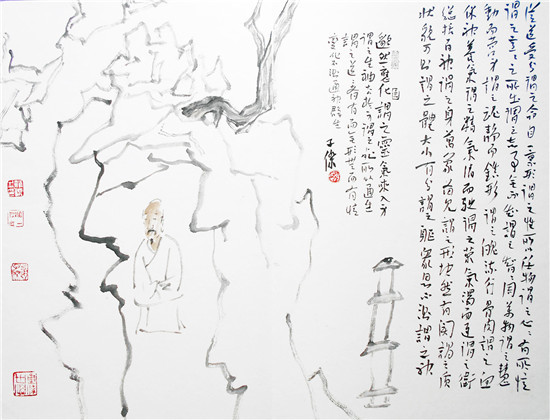 從道受分謂之命自一禀形謂之性所以任物謂之心心有所憶
謂之意意之所出謂之志事無不知謂之智智周萬物謂之慧
動而營身謂之魂静而鎮形謂之魄流行骨肉謂之血
保神養氣謂之精氣清而駛謂之榮氣濁而遲謂之衛
總括百神謂之身萬象備見謂之形塊然有閡謂之質
狀貌可則謂之體大小有分謂之軀衆思不測謂之神
邈然應化謂之靈氣來入身
謂之生神去於身謂之死所以通生
謂之道道者有而無形無而有情
變化不測通神群生
子傑